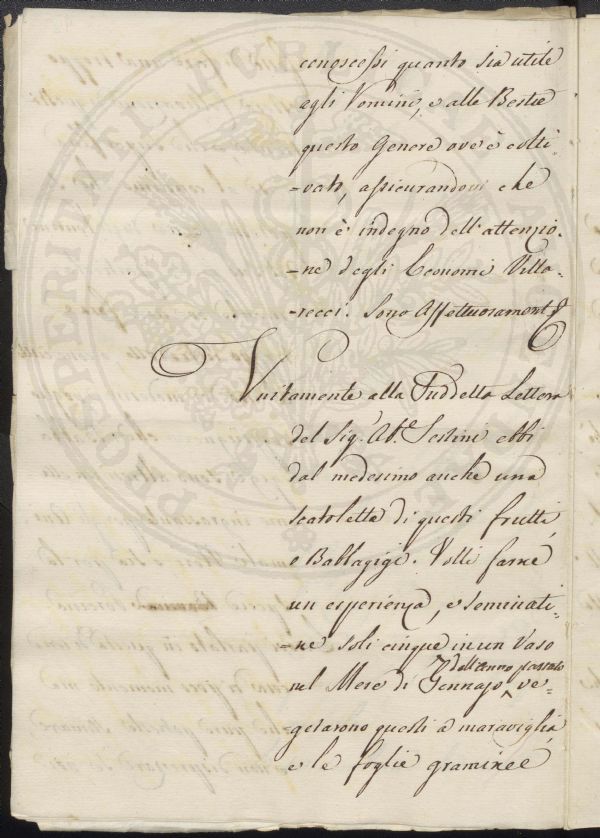 conoscessi quanto sia utile
agli Vomini, e alle Bestie
questo Genere ove è colti-
-vato, assicurandovi che
non è indegno dell'attenzio-
-ne degli Economi Villa-
-recci. Sono Affettuosament.e
Vnitamente alla Suddetta Lettera
del Sig.r Ab.e Sestini ebbi
dal medesimo anche una
scatoletta di questi frutti,
o Babbagigi. Volli farne
un esperienza, e seminati-
-ne soli cinque in un Vaso
dell'anno passato
nel Mese di Gennajo ^ ve-
getarono questi a maraviglia
e le foglie graminee
PROSPERITATI PUBLICAE AUGENDAE